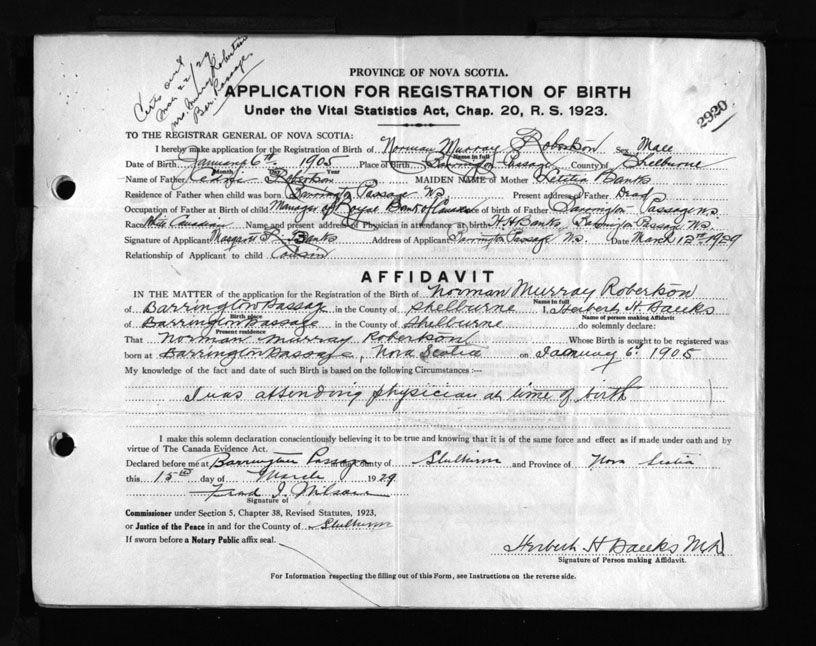 Certs sent
Mar 22/29
Mrs. Murray Robertson
Bar. Passage
2920
PROVINCE OF NOVA SCOTIA.
APPLICATION FOR REGISTRATION OF BIRTH
Under the Vital Statistics Act, Chap. 20, R. S. 1923.
TO THE REGISTRAR GENERAL OF NOVA SCOTIA:
I hereby make application for the Registration of Birth of Norman Murray Robertson Sex Male
Name in full
Date of Birth January 6th 1905 Place of Birth Barrington Passage County of Shelburne
Month Day Year
Name of Father Robertson MAIDEN NAME of Mother Letitia Banks
Residence of Father when child was born Barrington Passage N.S. Present address of Father Dead
Occupation of Father at Birth of child Manager of Royal Bank of Canada Place of birth of Father Barrington Passage N.S.
Race Canadian Name and present address of Physician in attendance at birth H. H. Banks, Barrington Passage N.S.
Signature of Applicant Margaret Banks Address of Applicant Barrington Passage N.S. Date March 12th 1929
Relationship of Applicant to child Cousin
AFFIDAVIT
IN THE MATTER of the application for the Registration of the Birth of Norman Murray Robertson
Name in full
of Barrington Passage in the County of Shelburne I, Herbert H. Banks
Birth place Name of person making Affidavit
of Barrington Passage in the County of Shelburne do solemnly declare:
Present residence
That Norman Murray Robertson Whose Birth is sought to be registered was
born at Barrington Passage, Nova Scotia on January 6th 1905
My knowledge of the fact and date of such Birth is based on the following Circumstances :—
I was attending physician at time of birth
I make this solemn declaration conscientiously believing it to be true and knowing that it is of the same force and effect as if made under oath and by
virtue of The Canada Evidence Act.
Declared before me at Barrington Passage in the County of Shelburne and Province of Nova Scotia
this 15th day of March 1929
Fred I. Wilson
Signature of
Commissioner under Section 5, Chapter 38, Revised Statutes, 1923,
or Justice of the Peace in and for the County of Shelburne
If sworn before a Notary Public affix seal.
Herbert H Banks M.D.
Signature of Person making Affidavit.
For Information respecting the filling out of this Form, see Instructions on the reverse side.